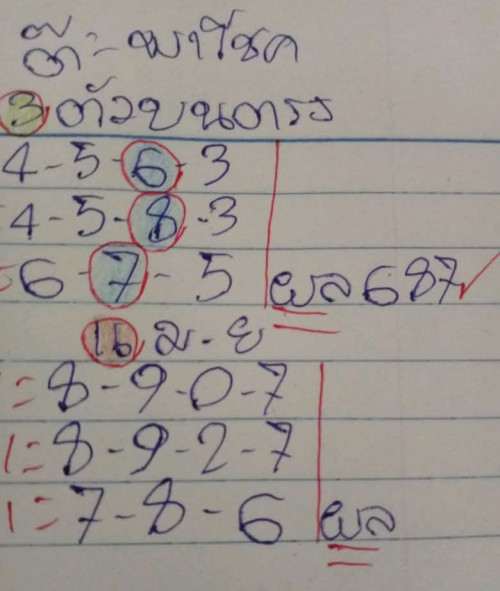 ต๊ะ-พาโชค
3 ตัวบนตรง
4-5-6-3
=4-5-8-3
=6-7-5 ผล 687✓
16 ม.ย
1=8-9-0-7
1=8-9-2-7
1=7-8-6 ผล